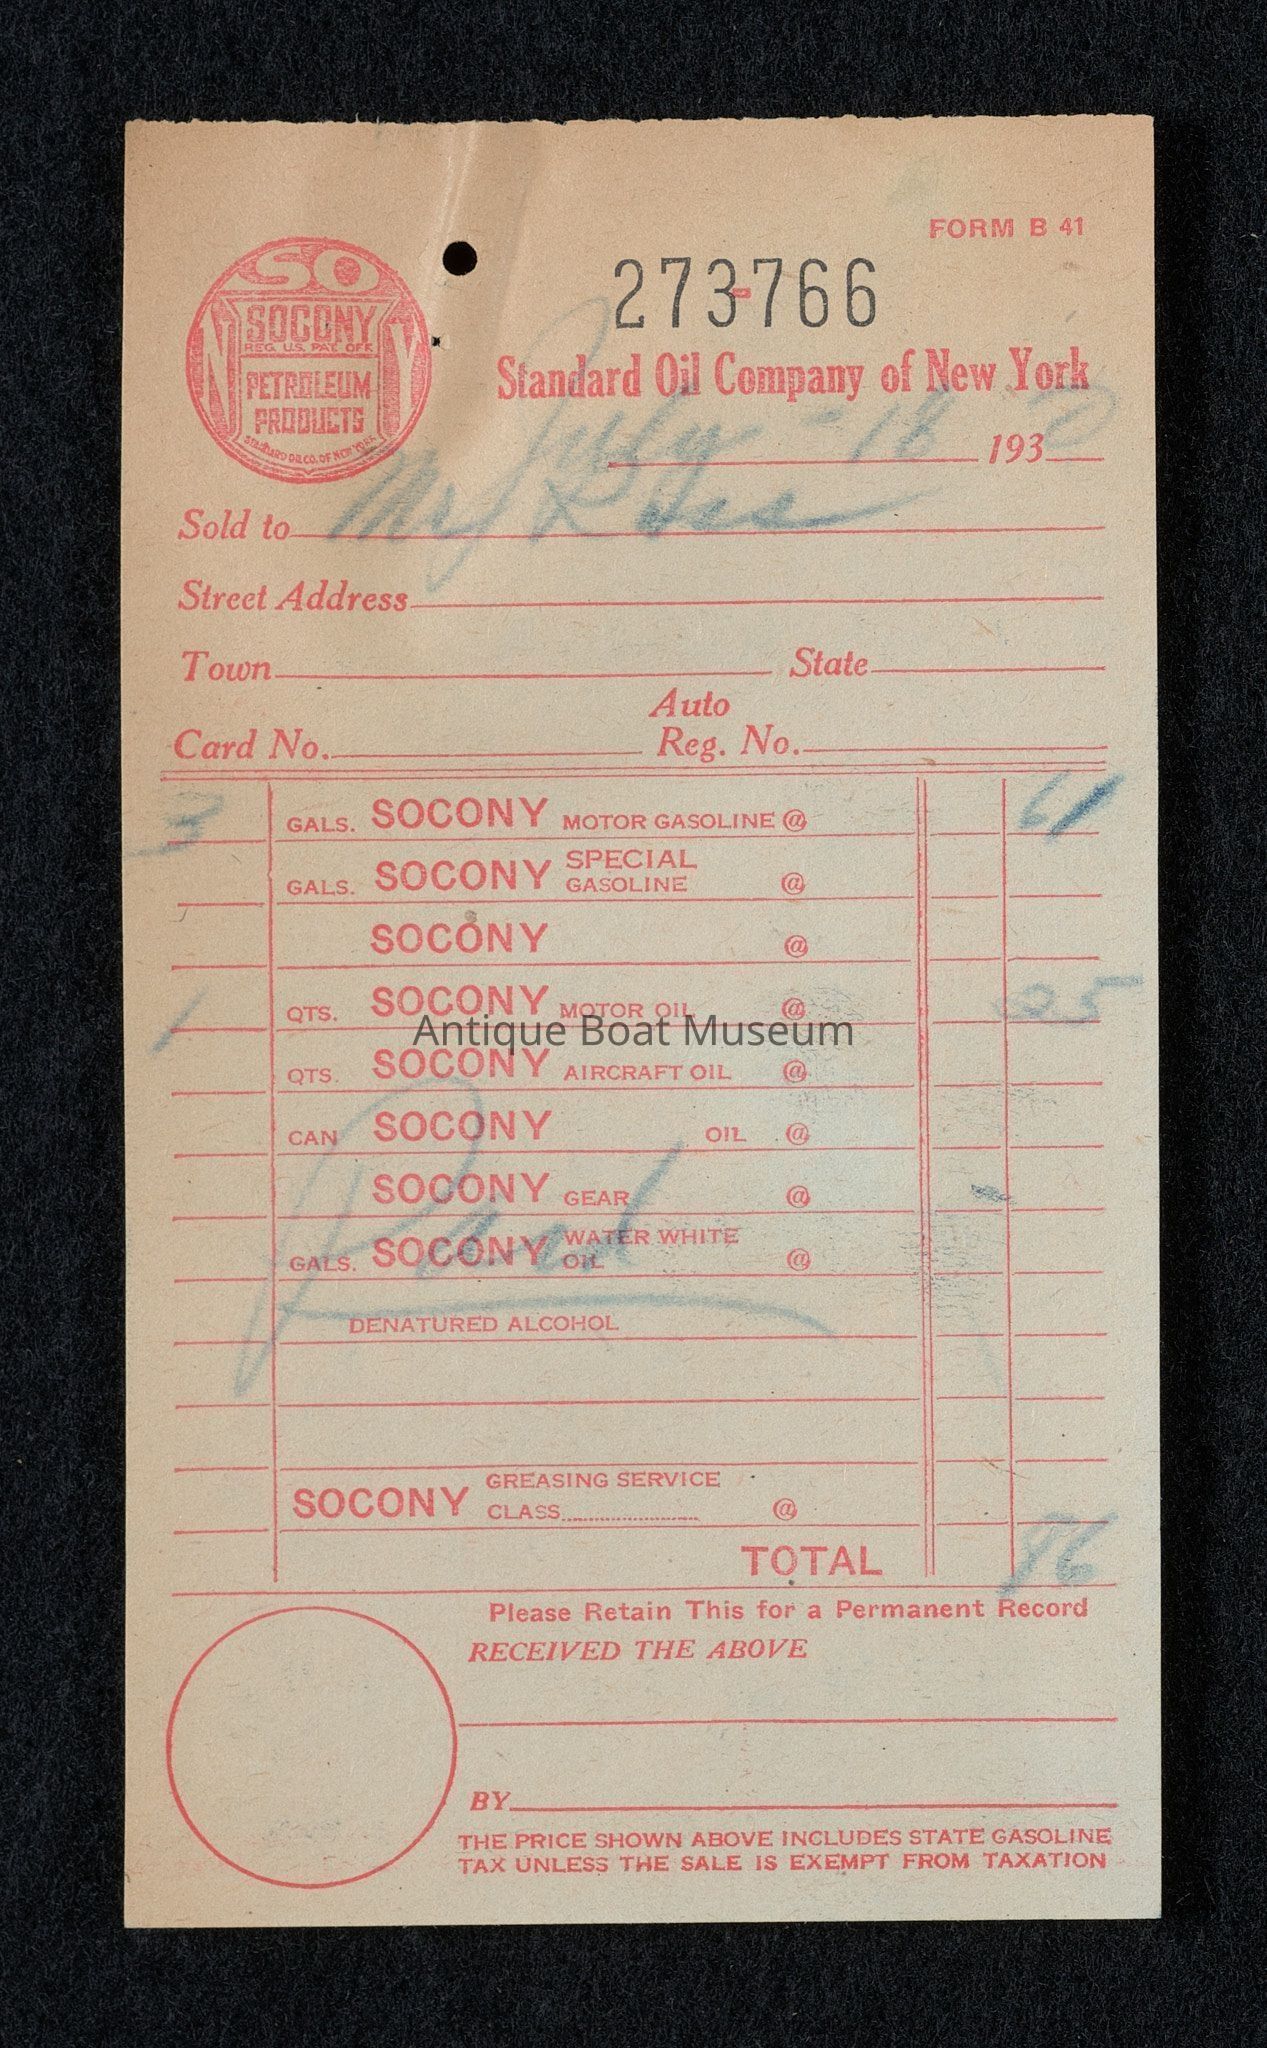 FORM B 41
SO
N Y
SOCONY
REG. U.S. PAT. OFF.
PETROLEUM
PRODUCTS
STANDARD OIL CO. OF NEW YORK
273-766
Standard Oil Company of New York
July - 18 1932
Sold to
Street Address
Town State
Auto
Card No. Reg. No.
3 GALS. SOCONY MOTOR GASOLINE @ 61
GALS. SOCONY SPECIAL GASOLINE @
SOCONY @
1 QTS. SOCONY MOTOR OIL @ 25
Antique Boat Museum
QTS. SOCONY AIRCRAFT OIL @
CAN SOCONY OIL @
SOCONY GEAR @
GALS. SOCONY WATER WHITE OIL @
Paid
DENATURED ALCOHOL
SOCONY GREASING SERVICE
CLASS @
TOTAL 86
Please Retain This for a Permanent Record
RECEIVED THE ABOVE
BY
THE PRICE SHOWN ABOVE INCLUDES STATE GASOLINE
TAX UNLESS THE SALE IS EXEMPT FROM TAXATION